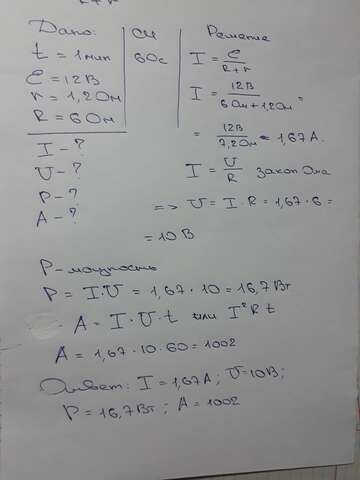 R+r
Дано:
t = 1 мин
Ɛ = 12 В
r = 1,2 Ом
R = 6 Ом
I - ?
U - ?
P - ?
A - ?
СИ
60 с
Решение
I = Ɛ / R+r
I = 12В / 6Ом+1,2Ом =
= 12В / 7,2Ом = 1,67 А.
I = U / R закон Ома
=> U = I · R = 1,67 · 6 =
= 10 В
P - мощность
P = I · U = 1,67 · 10 = 16,7 Вт
A = I · U · t или I² R t
A = 1,67 · 10 · 60 = 1002
Ответ: I = 1,67 А; U = 10 В;
P = 16,7 Вт; A = 1002